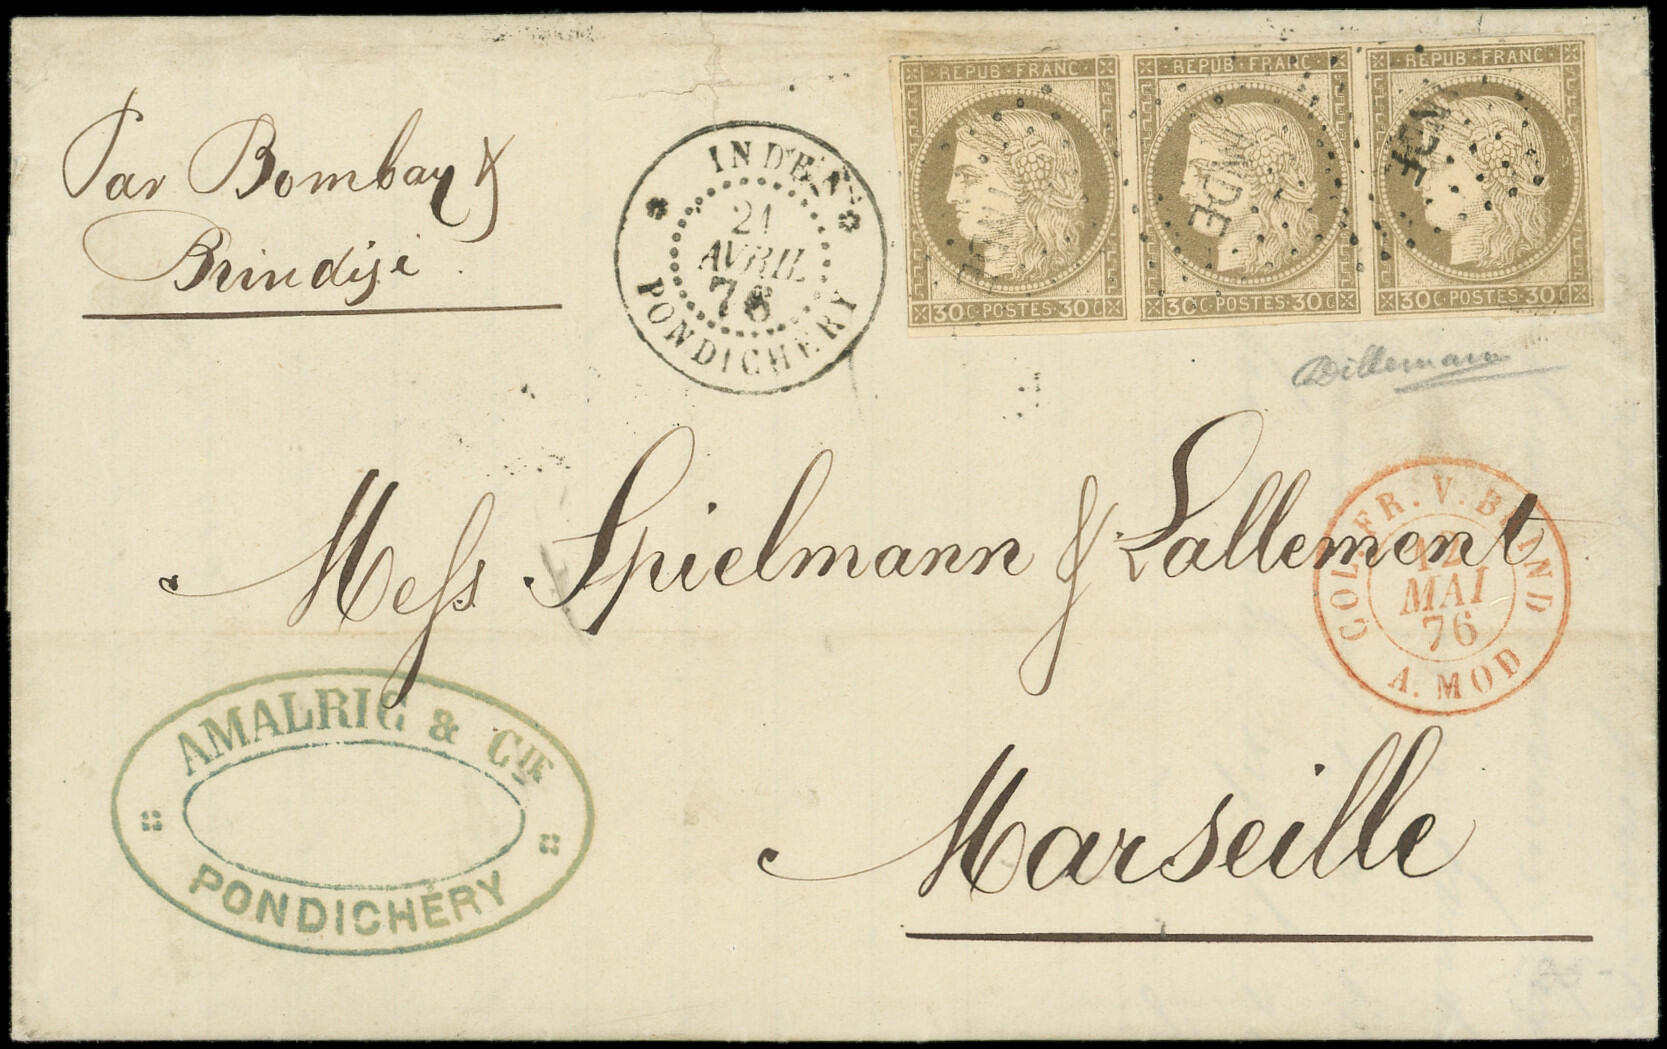 Par Bombay &
Brindisi
INDE
21
AVRIL
76
PONDICHERY
REPUB·FRANC
30C·POSTES·30C
REPUB·FRANC
30C·POSTES·30C
REPUB·FRANC
30C·POSTES·30C
INDE
Dillemann
Mess Spielmann & Lallement
COL. FR. V. BRIND
12
MAI
76
A. MOD
AMALRIC & CIE
PONDICHÉRY
Marseille